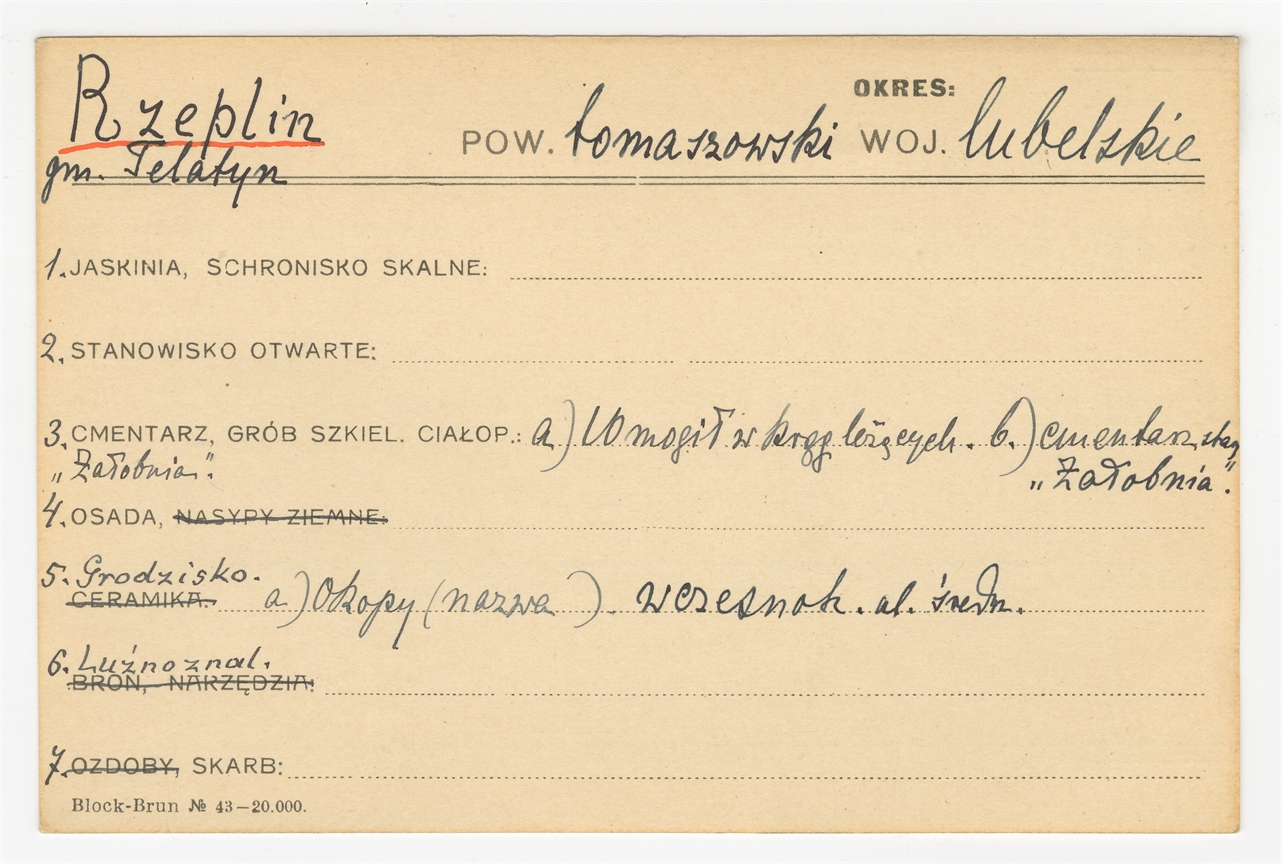 Rzeplin
OKRES:
POW. tomaszowski WOJ. lubelskie
gm. Telatyn
1. JASKINIA, SCHRONISKO SKALNE:
2. STANOWISKO OTWARTE:
3. CMENTARZ, GRÓB SZKIEL. CIAŁOP.: a) 10 mogił w kręg leżących. b.) cmentarz
„Żałobnia". „Żałobnia".
4. OSADA, NASYPY ZIEMNE:
5. Grodzisko.
CERAMIKA. a) Okopy (nazwa ). wczesnoh. al. średn.
6. Luźno znal.
BROŃ, NARZĘDZIA:
7. OZDOBY, SKARB:
Block-Brun № 43–20.000.